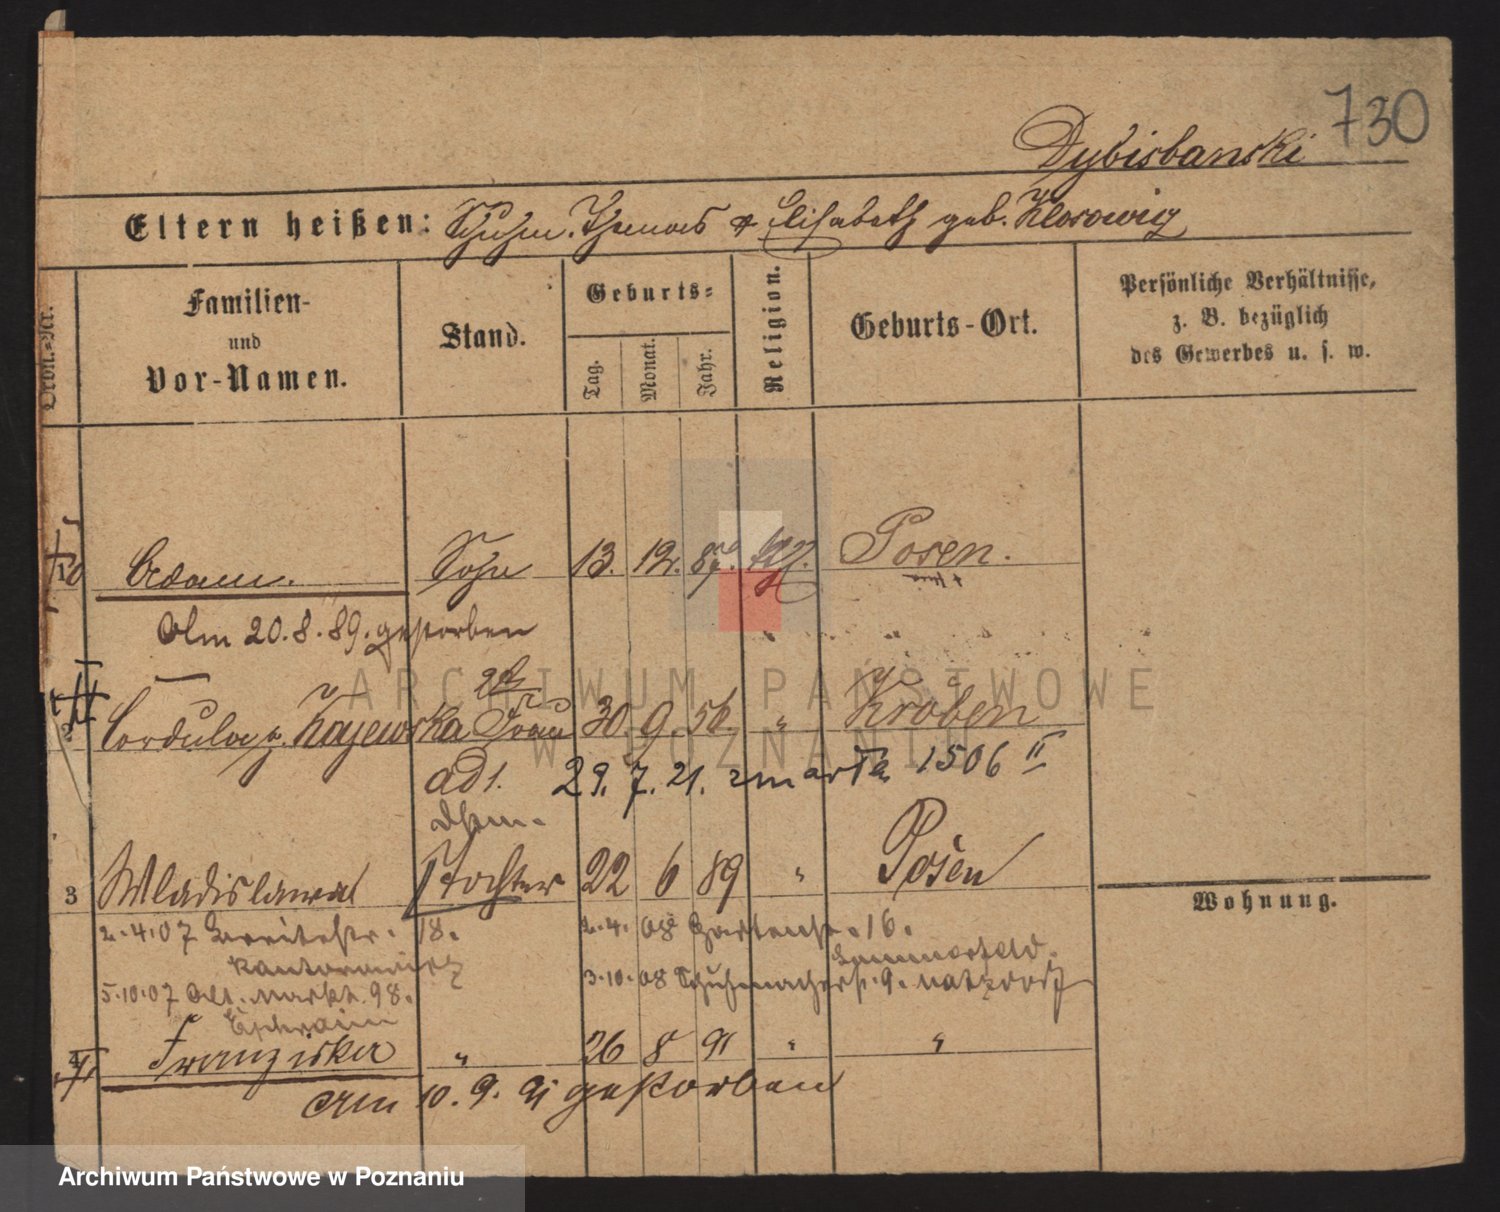 730
Dybisbanski
Eltern heißen: Schuhm. Thomas & Elisabeth geb. Klosowig
Ordn.-Nr.
Familien- und Vor-Namen.
Stand.
Geburts-
Tag.
Monat.
Jahr.
Religion.
Geburts-Ort.
Persönliche Verhältnisse,
z. B. bezüglich
des Gewerbes u. s. w.
Adam. Sohn 13. 12. 87. Posen.
Am 20.8.89. gestorben
Cordula g. Kajewska Frau 30. 9. 56 " Kröben
29. 7. 21. zmarła 1506 II
3 Wladislawa Tochter 22 6 89 " Posen
Wohnung.
2.4.07 Breitestr. 18. 2.4.08 Gartenstr. 16.
Kantorowicz
5.10.07 Alt. Markt. 98. 3.10.08 Schuhmacherstr. 9.
Ephraim
4 Franziska " 26 8 91 " "
Am 10. 9. 91 gestorben
ARCHIWUM PAŃSTWOWE
W POZNANIU
Archiwum Państwowe w Poznaniu